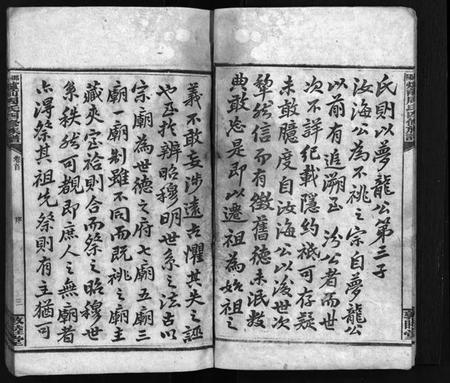 氏則以夢龍公第三子
汝海公為不祧之宗自夢龍公
以前有追溯至汾公者而世
次不詳紀載隱約祗可存疑
未敢臆度自汝海公以後世次
犖然而有徵舊德未泯數
典敢忘是即以遷祖為始祖之
義不敢妄涉遠古懼其失之誣
也至於辨昭穆明世系之法古以
宗廟為世德之府七廟五廟三
廟一廟制雖不同而既祧之廟主
藏夾室祫則合而祭之昭穆世
系秩然可觀即庶人之無廟者
亦得祭其祖先祭則有主猶可
卷首
序
三
敦睦堂